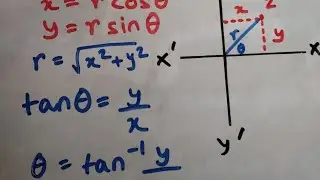 x = r cosθ
y = r sinθ
r = √x² + y²
tanθ = y/x
θ = tan⁻¹ y
x
z
r
y
θ
x'
x
y'